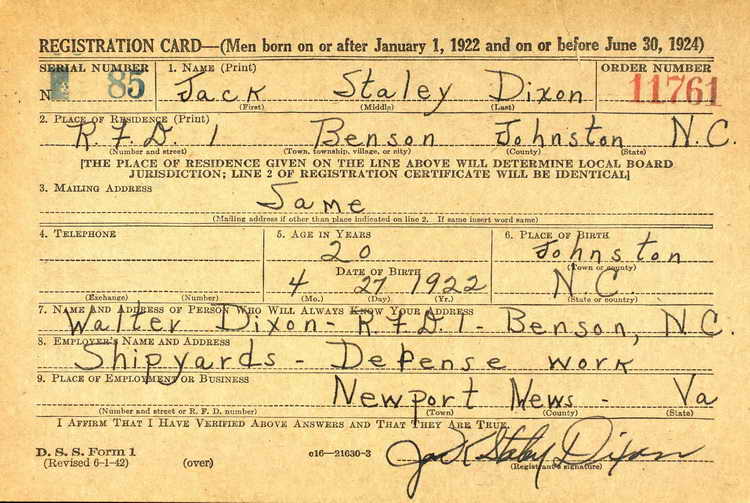 REGISTRATION CARD—(Men born on or after January 1, 1922 and on or before June 30, 1924)
SERIAL NUMBER 1. NAME (Print) ORDER NUMBER
N 85 Jack Staley Dixon 11761
(First) (Middle) (Last)
2. PLACE OF RESIDENCE (Print)
R.F.D. 1 Benson Johnston N.C.
(Number and street) (Town, township, village, or city) (County) (State)
[THE PLACE OF RESIDENCE GIVEN ON THE LINE ABOVE WILL DETERMINE LOCAL BOARD
JURISDICTION; LINE 2 OF REGISTRATION CERTIFICATE WILL BE IDENTICAL]
3. MAILING ADDRESS
Same
(Mailing address if other than place indicated on line 2. If same insert word same)
4. TELEPHONE 5. AGE IN YEARS 6. PLACE OF BIRTH
20 Johnston
DATE OF BIRTH (Town or county)
4 27 1922 N.C.
(Exchange) (Number) (Mo.) (Day) (Yr.) (State or country)
7. NAME AND ADDRESS OF PERSON WHO WILL ALWAYS KNOW YOUR ADDRESS
Walter Dixon - R.F.D. 1 - Benson, N.C.
8. EMPLOYER'S NAME AND ADDRESS
Shipyards - Depense work
9. PLACE OF EMPLOYMENT OR BUSINESS
Newport News - Va
(Number and street or R. F. D. number) (Town) (County) (State)
I AFFIRM THAT I HAVE VERIFIED ABOVE ANSWERS AND THAT THEY ARE TRUE.
D. S. S. Form 1
(Revised 6-1-42) (over) c16—21630-3 Jack Staley Dixon
(Registrant's signature)